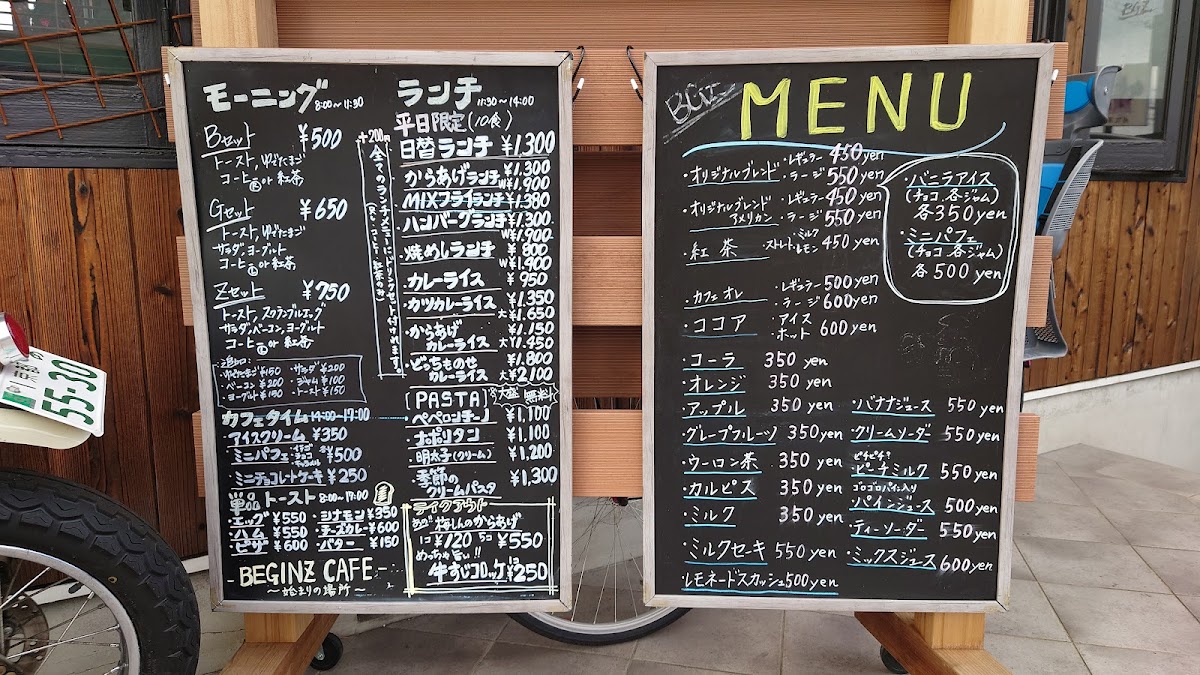 モーニング 8:00~11:30
Bセット ¥500
トースト,ゆでたまご
コーヒー or 紅茶
Gセット ¥650
トースト,ゆでたまご
サラダ,ヨーグルト
コーヒー or 紅茶
Zセット ¥750
トースト,スクランブルエッグ
サラダ,ベーコン,ヨーグルト
コーヒー or 紅茶
・ゆでたまご ¥150 ・サラダ ¥200
・ベーコン ¥200 ・ジャム ¥100
・ヨーグルト ¥150 ・トースト ¥150
カフェタイム 14:00~17:00
・アイスクリーム ¥350
・ミニパフェ ¥500
・ミニチョコレートケーキ ¥250
単品トースト 8:00~17:00
・エッグ ¥550 ・シナモン ¥350
・ハム ¥550 ・チーズカレー ¥600
・ピザ ¥600 ・バター ¥150
- BEGINZ CAFE -
~始まりの場所~
+200円
全てのランチメニューにドリンクセット付けれます。
ランチ 11:30~14:00
平日限定(10食)
日替ランチ ¥1,300
・からあげランチ ¥1,300
W¥1,900
・MIXフライランチ ¥1,380
・ハンバーグランチ ¥1,300
W¥1,900
・焼めしランチ ¥800
・カレーライス ¥950
・カツカレーライス ¥1,350
大¥1,650
・からあげカレーライス ¥1,150
大¥1,450
・どっちものせカレーライス ¥1,800
大¥2,100
[PASTA] 大盛無料!
・ペペロンチーノ ¥1,100
・ナポリタン ¥1,100
・明太子(クリーム) ¥1,200
・季節のクリームパスタ ¥1,300
テイクアウト
梅しんのからあげ
1コ ¥120 5コ ¥550
めっちゃ旨い!!
牛すじコロッケ 1コ ¥250
MENU
・オリジナルブレンド ・レギュラー 450yen
・ラージ 550yen
・オリジナルブレンド ・レギュラー 450yen
アメリカン ・ラージ 550yen
・紅茶 ・ストレート・ミルク・レモン 450yen
・カフェオレ ・レギュラー 500yen
・ラージ 600yen
・ココア ・アイス
・ホット 600yen
・コーラ 350yen
・オレンジ 350yen
・アップル 350yen
・グレープフルーツ 350yen
・ウーロン茶 350yen
・カルピス 350yen
・ミルク 350yen
・ミルクセーキ 550yen
・レモネードスカッシュ 500yen
・バニラアイス
(チョコ.各ジャム)
各350yen
・ミニパフェ
(チョコ.各ジャム)
各500yen
・バナナジュース 550yen
・クリームソーダー 550yen
ピチピチ?
・ピーチミルク 550yen
ゴロゴロパイン入り
・パインジュース 500yen
・ティーソーダー 550yen
・ミックスジュース 600yen
55-30